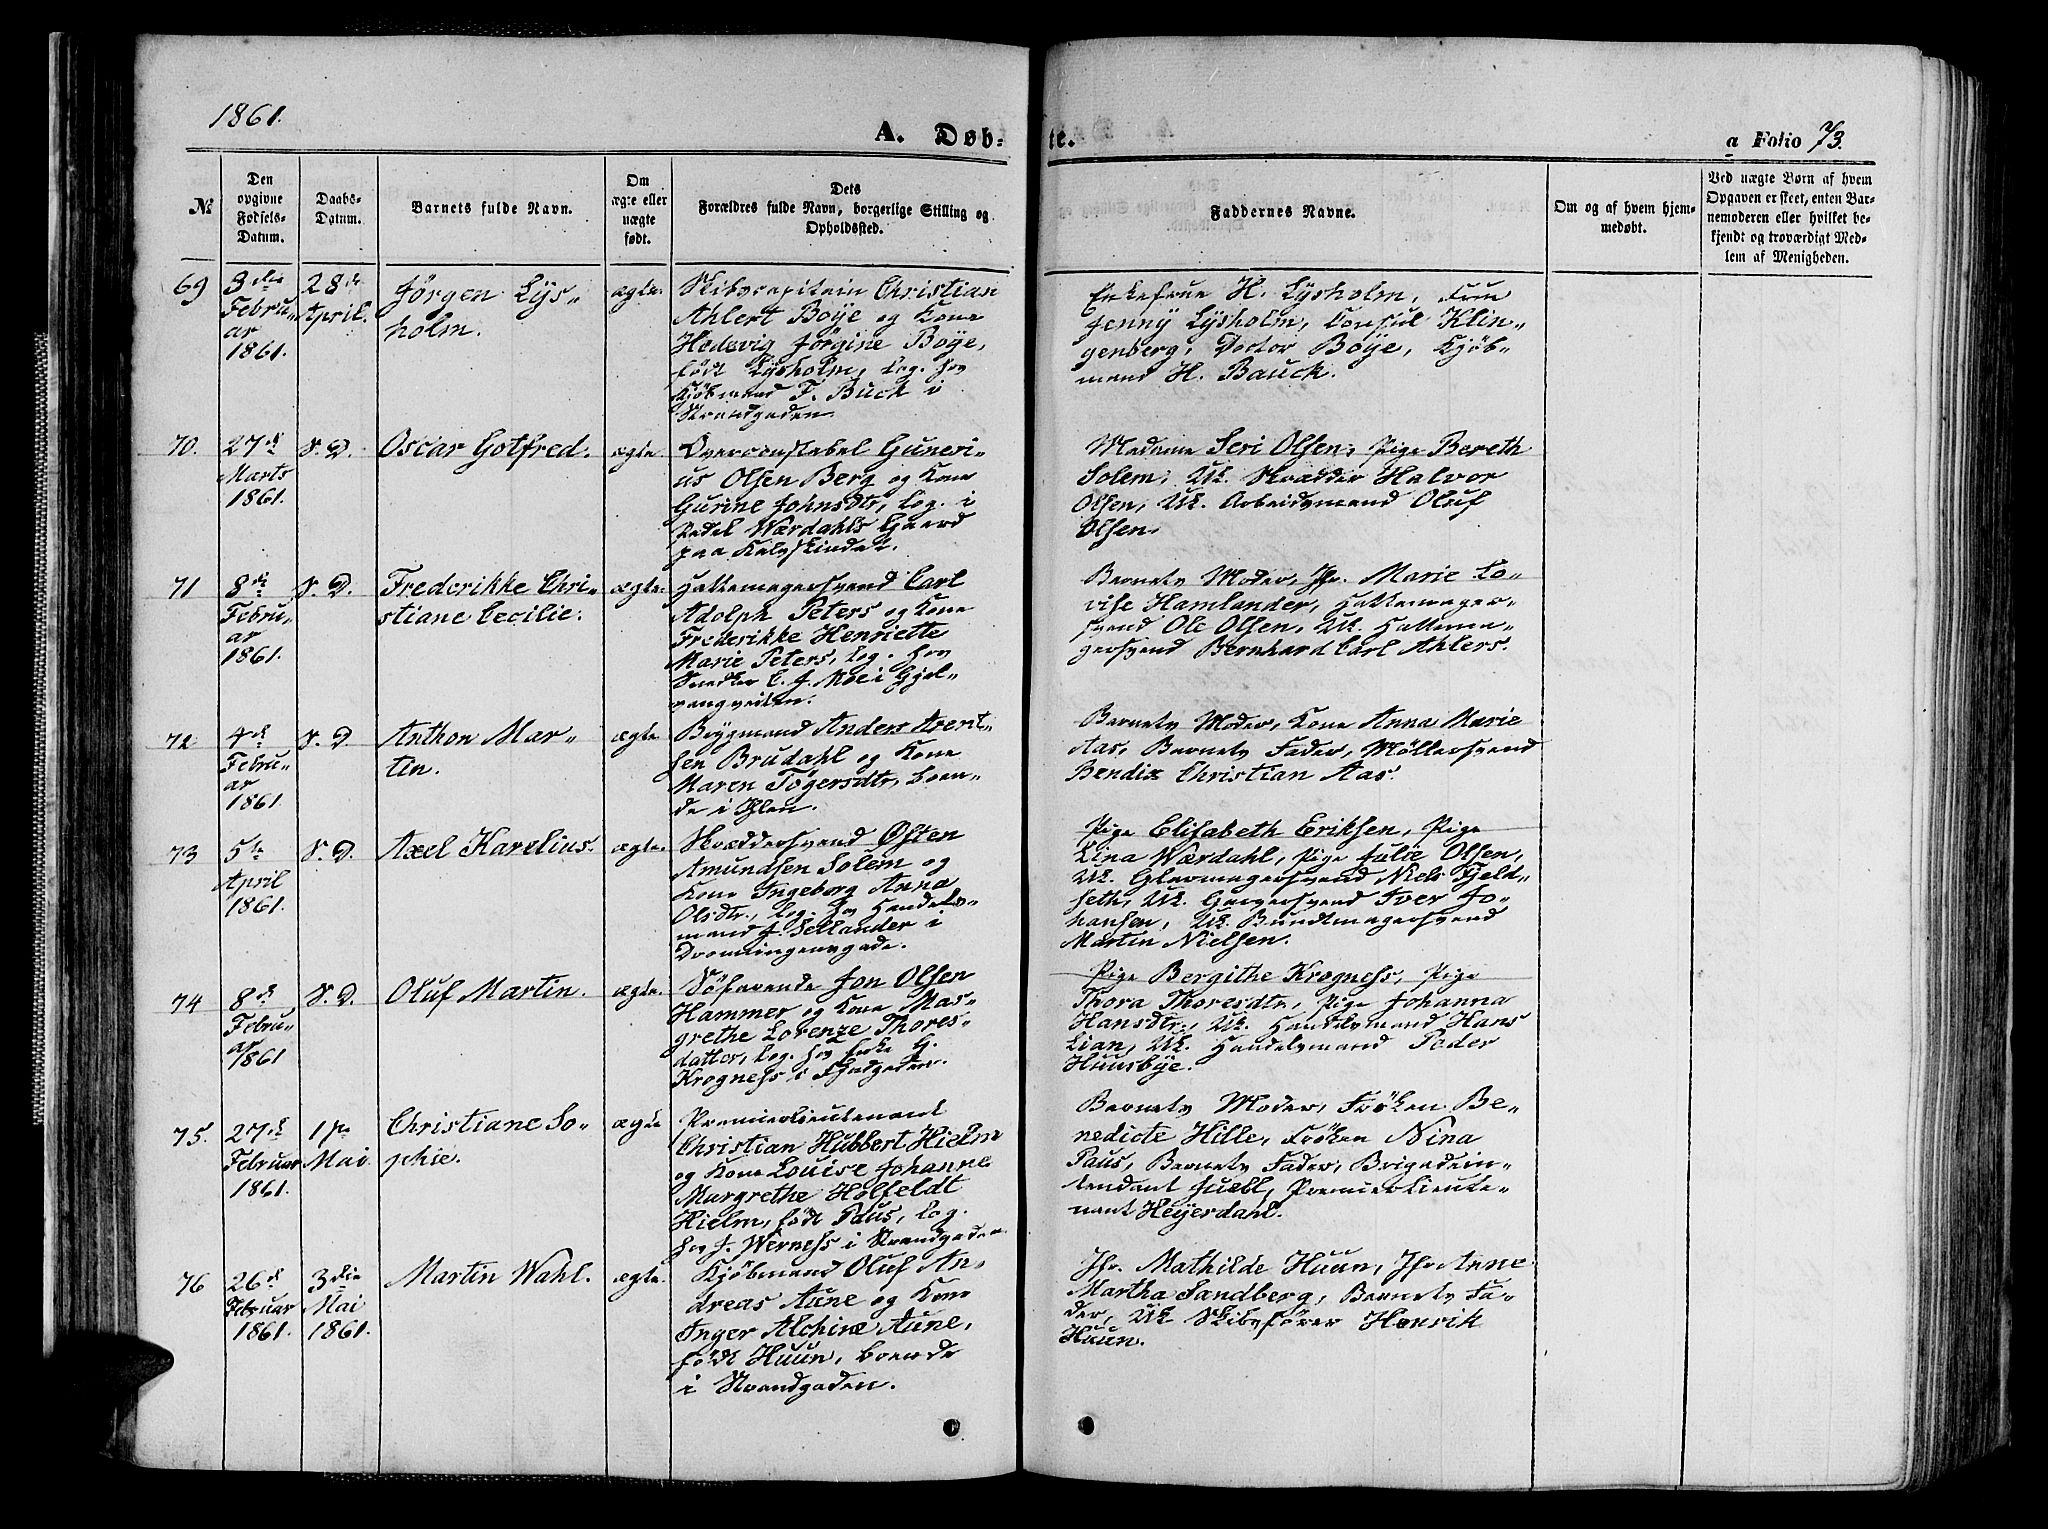 1861.
A. Døb-
te.
a Folio 73.
№
Den
opgivne
Fødsels-
Datum.
Daabs-
Datum.
Barnets fulde Navn.
Om
ægte eller
uægte
født.
Dets
Forældres fulde Navn, borgerlige Stilling og
Opholdssted.
Faddernes Navne.
Om og af hvem hjem-
medøbt.
Ved uægte Børn af hvem
Opgaven er skeet, enten Bar-
nemoderen eller hvilket be-
kjendt og troværdigt Med-
lem af Menigheden.
69
3die
Februar
1861.
28de
April.
Jørgen Lys-
holm.
ægte.
Skibscapitain Christian
Ahlert Boÿe og Kone
Hedevig Jørgine Boÿe,
født Lÿsholm, log. hos
Kjøbmand F. Buck i
Strandgaden.
Enkefrue H. Lÿsholm, Frue
Jennÿ Lÿsholm, Consul Klin-
genberg, Doctor Boÿe, Kjøb-
mand H. Bauck.
70.
27de
Marts
1861.
S. D.
Oscar Gotfred.
ægte
Overconstabel Guneri-
us Olsen Berg og Kone
Gurine Johnsdtr, log. i
Pedel Wærdahls Gaard
paa Kalvskindet.
Madame Seri Olsen, Pige Bereth
Solem, Uk. Skrædder Halvor
Olsen, Uk. Arbeidsmand Oluf
Olsen.
71
8de
Febru-
ar
1861.
S. D.
Frederikke Chri-
stiane Cecilie.
ægte.
Hattemagersvend Carl
Adolph Peters og Kone
Frederikke Henriette
Marie Peters, log. hos
Snedker C. J. Moe i Gjel-
vangveiten.
Barnets Moder, Jfr. Marie Lo-
vise Hamlander, Hattemager-
svend Ole Olsen, Uk. Hattema-
gersvend Bernhard Carl Ahlers.
72
4de
Febru-
ar
1861.
S. D.
Anthon Mar-
tin.
ægte
Bÿgmand Anders Arent-
sen Brudahl og Kone
Maren Tøgersdtr, boen-
de i Ihlen.
Barnets Moder, Kone Anna Marie
Aas, Barnets Fader, Møllersvend
Bendix Christian Aas.
73
5te
April
1861.
S. D.
Axel Karelius.
ægte.
Skræddersvend Østen
Amundsen Solem og
Kone Ingeborg Anna
Olsdtr., log. hos Handels-
mand J. Sellander i
Dronningensgade.
Pige Elisabeth Eriksen, Pige
Lina Wærdahl, Pige Julie Olsen,
Uk. Glarmagersvend Niels Fjeld-
seth, Uk. Garversvend Iver Jo-
hansen, Uk. Bundtmagersvend
Martin Nielsen.
74
8de
Febru-
ar
1861
S. D.
Oluf Martin.
ægte.
Søfarende Jon Olsen
Hammer og Kone Mar-
grethe Lorenze Thores-
datter, log. hos Enke G.
Krogness i Fjordgaden.
Pige Bergithe Krogness, Pige
Thora Thoresdtr, Pige Johanna
Hansdtr., Uk. Handelsmand Hans
Lian, Uk. Handelsmand Peder
Huusbÿe.
75.
27de
Februar
1861.
1ste
Mai.
Christiane So-
phie.
ægte
Premierlieutenant
Christian Hubbert Hielm
og Kone Louise Johanne
Margrethe Holfeldt
Hielm, født Paus, log.
hos J. Werness i Strandgaden.
Barnets Moder, Frøken Be-
nedicte Hille, Frøken Nina
Paus, Barnets Fader, Brigadein-
tendant Juell, Premierlieute-
nant Heÿerdahl.
76
26de
Februar
1861.
3die
Mai
1861.
Martin Wahl.
ægte.
Kjøbmand Oluf An-
dreas Aune og Kone
Inger Alchine Aune,
født Huun, boende
i Strandgaden.
Jfr. Mathilde Huun, Jfr. Anne
Martha Sandberg, Barnets Fa-
der, Uk. Skibsfører Henrik
Huun.